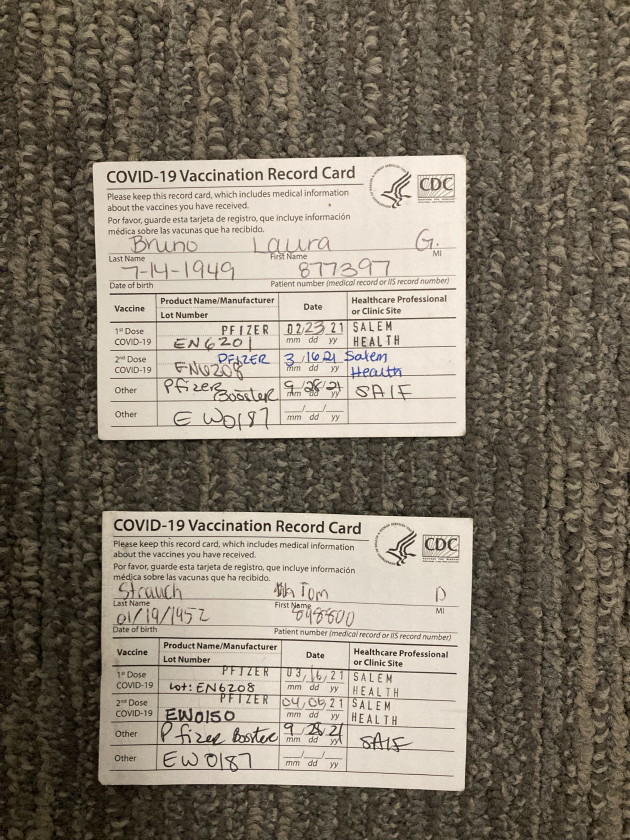 COVID-19 Vaccination Record Card
CDC
Please keep this record card, which includes medical information
about the vaccines you have received.
Por favor, guarde esta tarjeta de registro, que incluye información
médica sobre las vacunas que ha recibido.
Bruno Laura G.
Last Name First Name MI
7-14-1949 877397
Date of birth Patient number (medical record or IIS record number)
Vaccine Product Name/Manufacturer Date Healthcare Professional
Lot Number or Clinic Site
1st Dose PFIZER 02/23/21 SALEM
COVID-19 EN6201 mm dd yy HEALTH
2nd Dose PFIZER 3/16/21 Salem
COVID-19 EN6208 mm dd yy Health
Other Pfizer Booster 9/28/21 SAIF
mm dd yy
Other EW0187
mm dd yy
COVID-19 Vaccination Record Card
CDC
Please keep this record card, which includes medical information
about the vaccines you have received.
Por favor, guarde esta tarjeta de registro, que incluye información
médica sobre las vacunas que ha recibido.
Strauch Tom D
Last Name First Name MI
01/19/1952 848800
Date of birth Patient number (medical record or IIS record number)
Vaccine Product Name/Manufacturer Date Healthcare Professional
Lot Number or Clinic Site
1st Dose PFIZER 03/16/21 SALEM
COVID-19 Lot: EN6208 mm dd yy HEALTH
2nd Dose PFIZER 04/06/21 SALEM
COVID-19 EW0150 mm dd yy HEALTH
Other Pfizer Booster 9/28/21 SAIF
mm dd yy
Other EW0187
mm dd yy